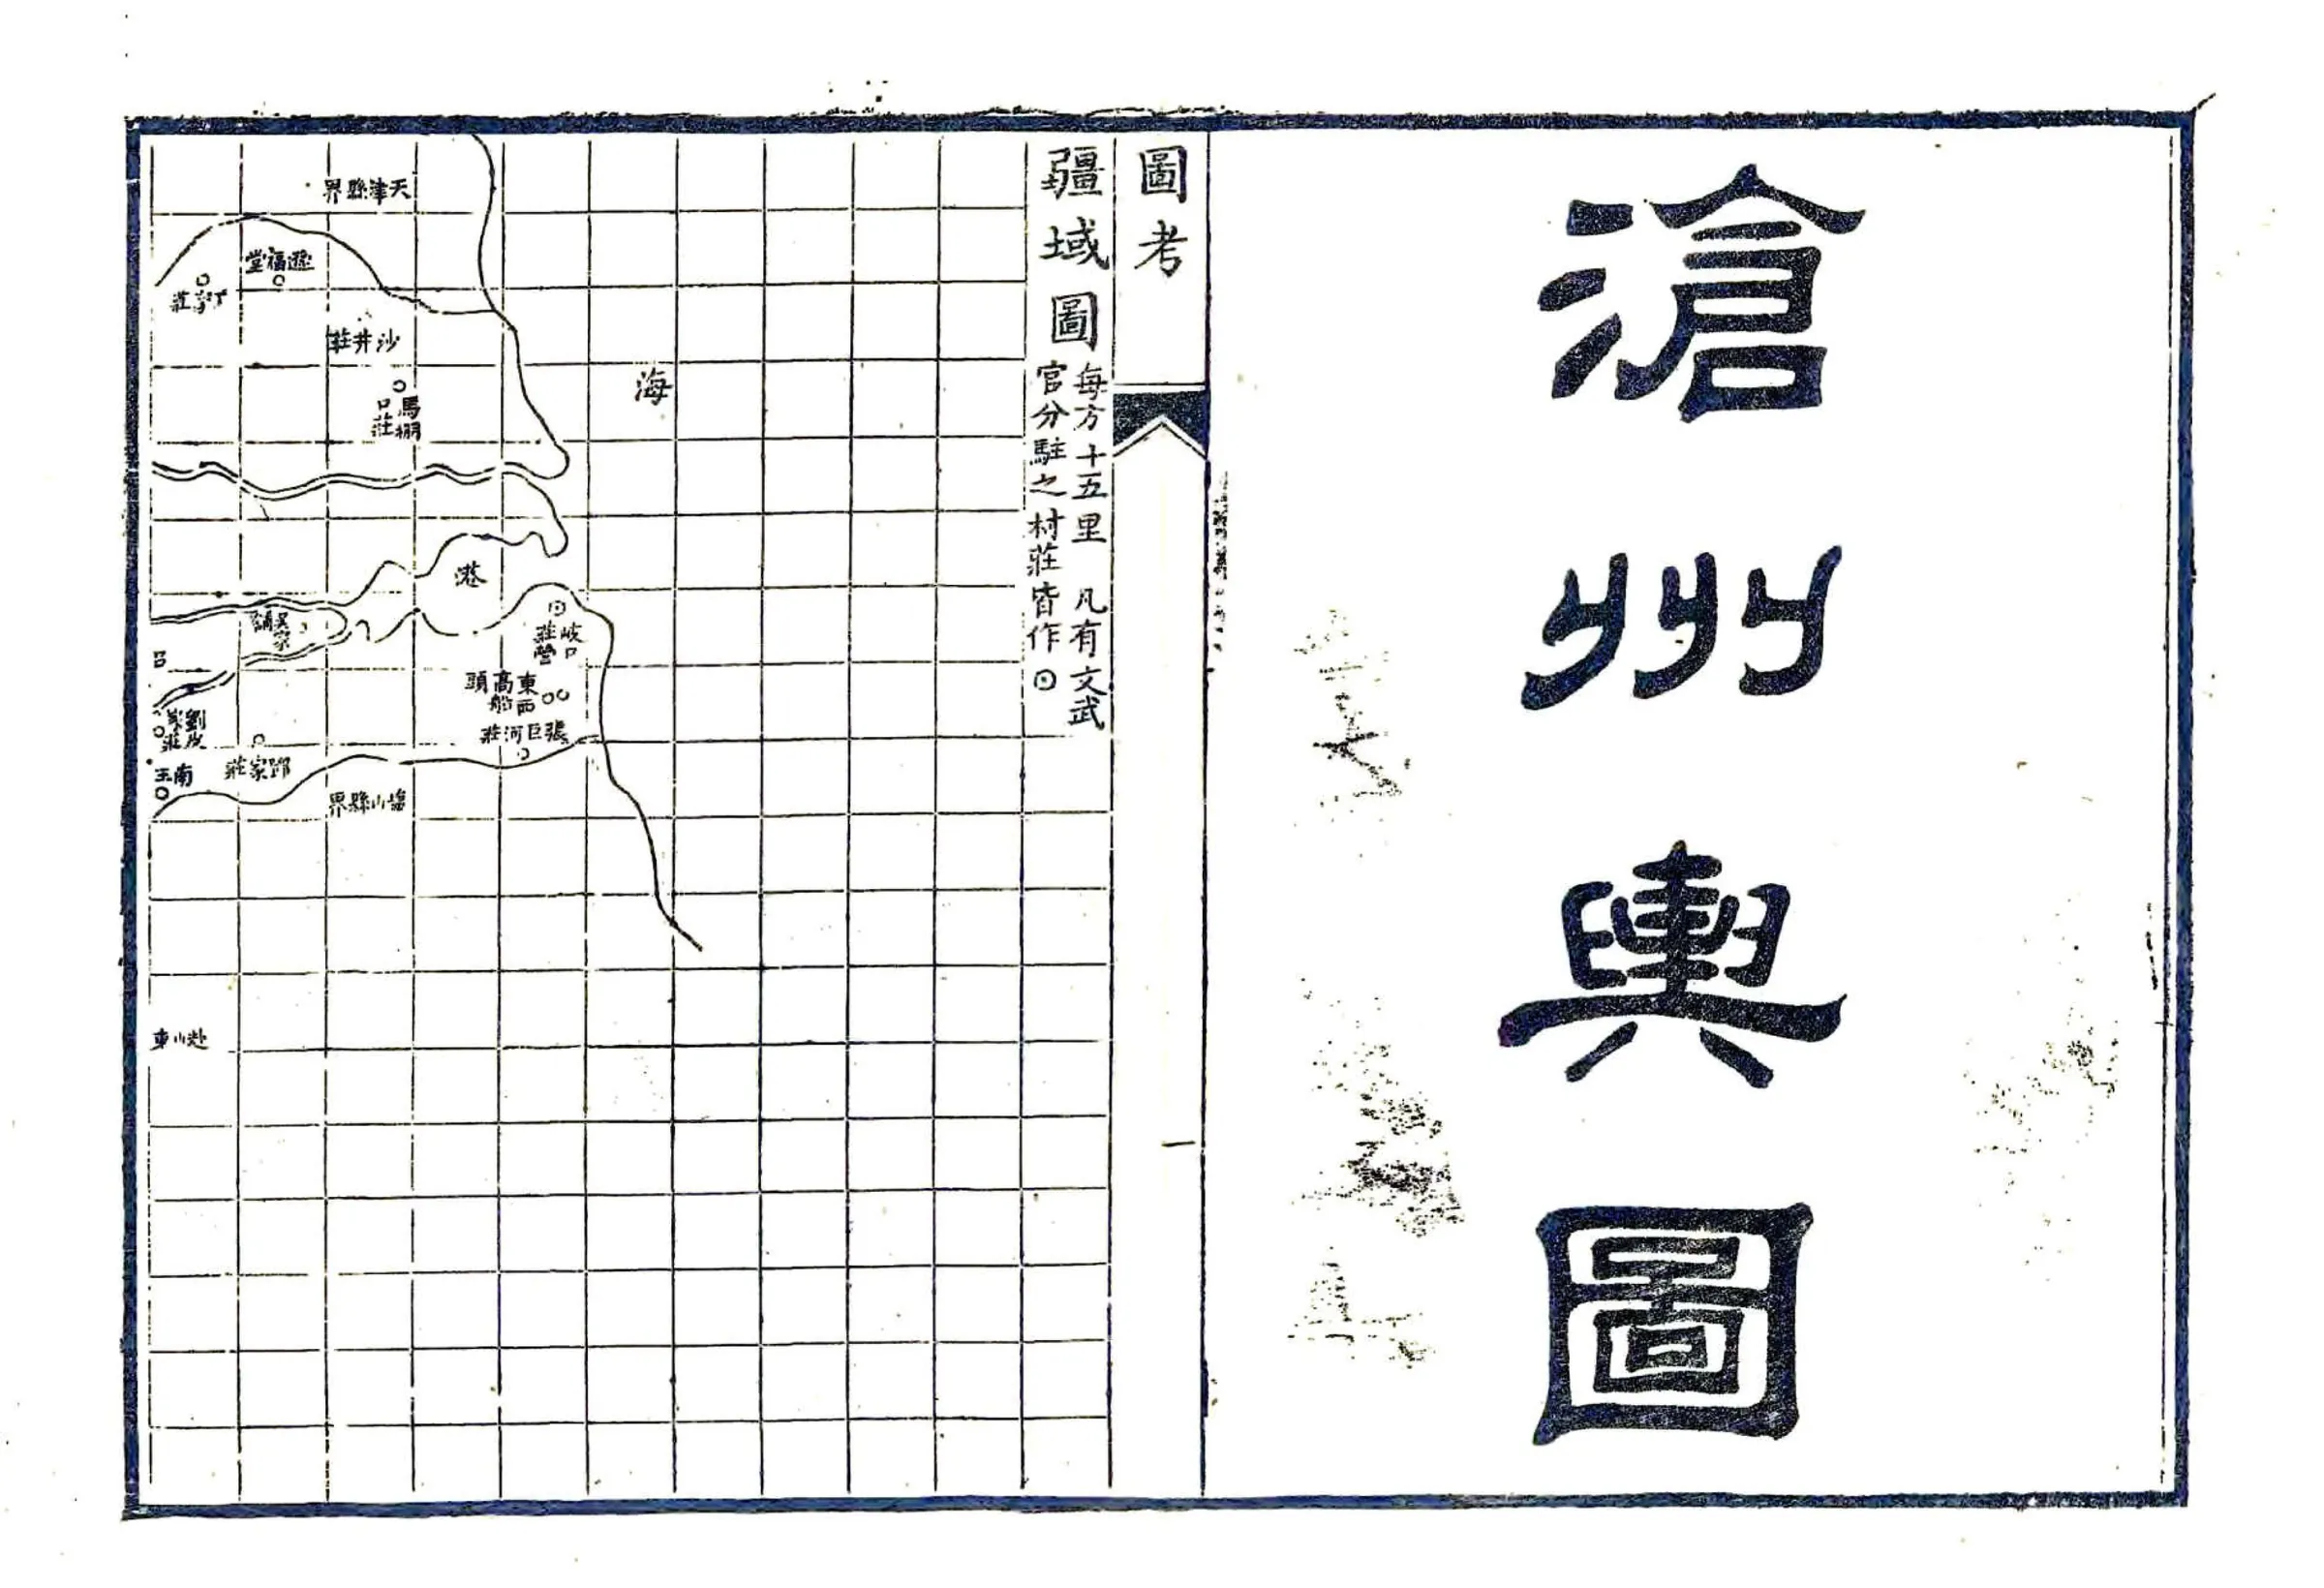 滄州輿圖
圖考
一
疆域圖
每方十五里 凡有文武
官分駐之村莊皆作⊙
海
天津縣界
遞福堂
丁家莊
沙井莊
馬棚
口莊
港
岐口
莊營
吳家
東西
高船
頭
張巨河莊
呂
劉皮
莊
南王
鄧家莊
鹽山縣界
赴山東